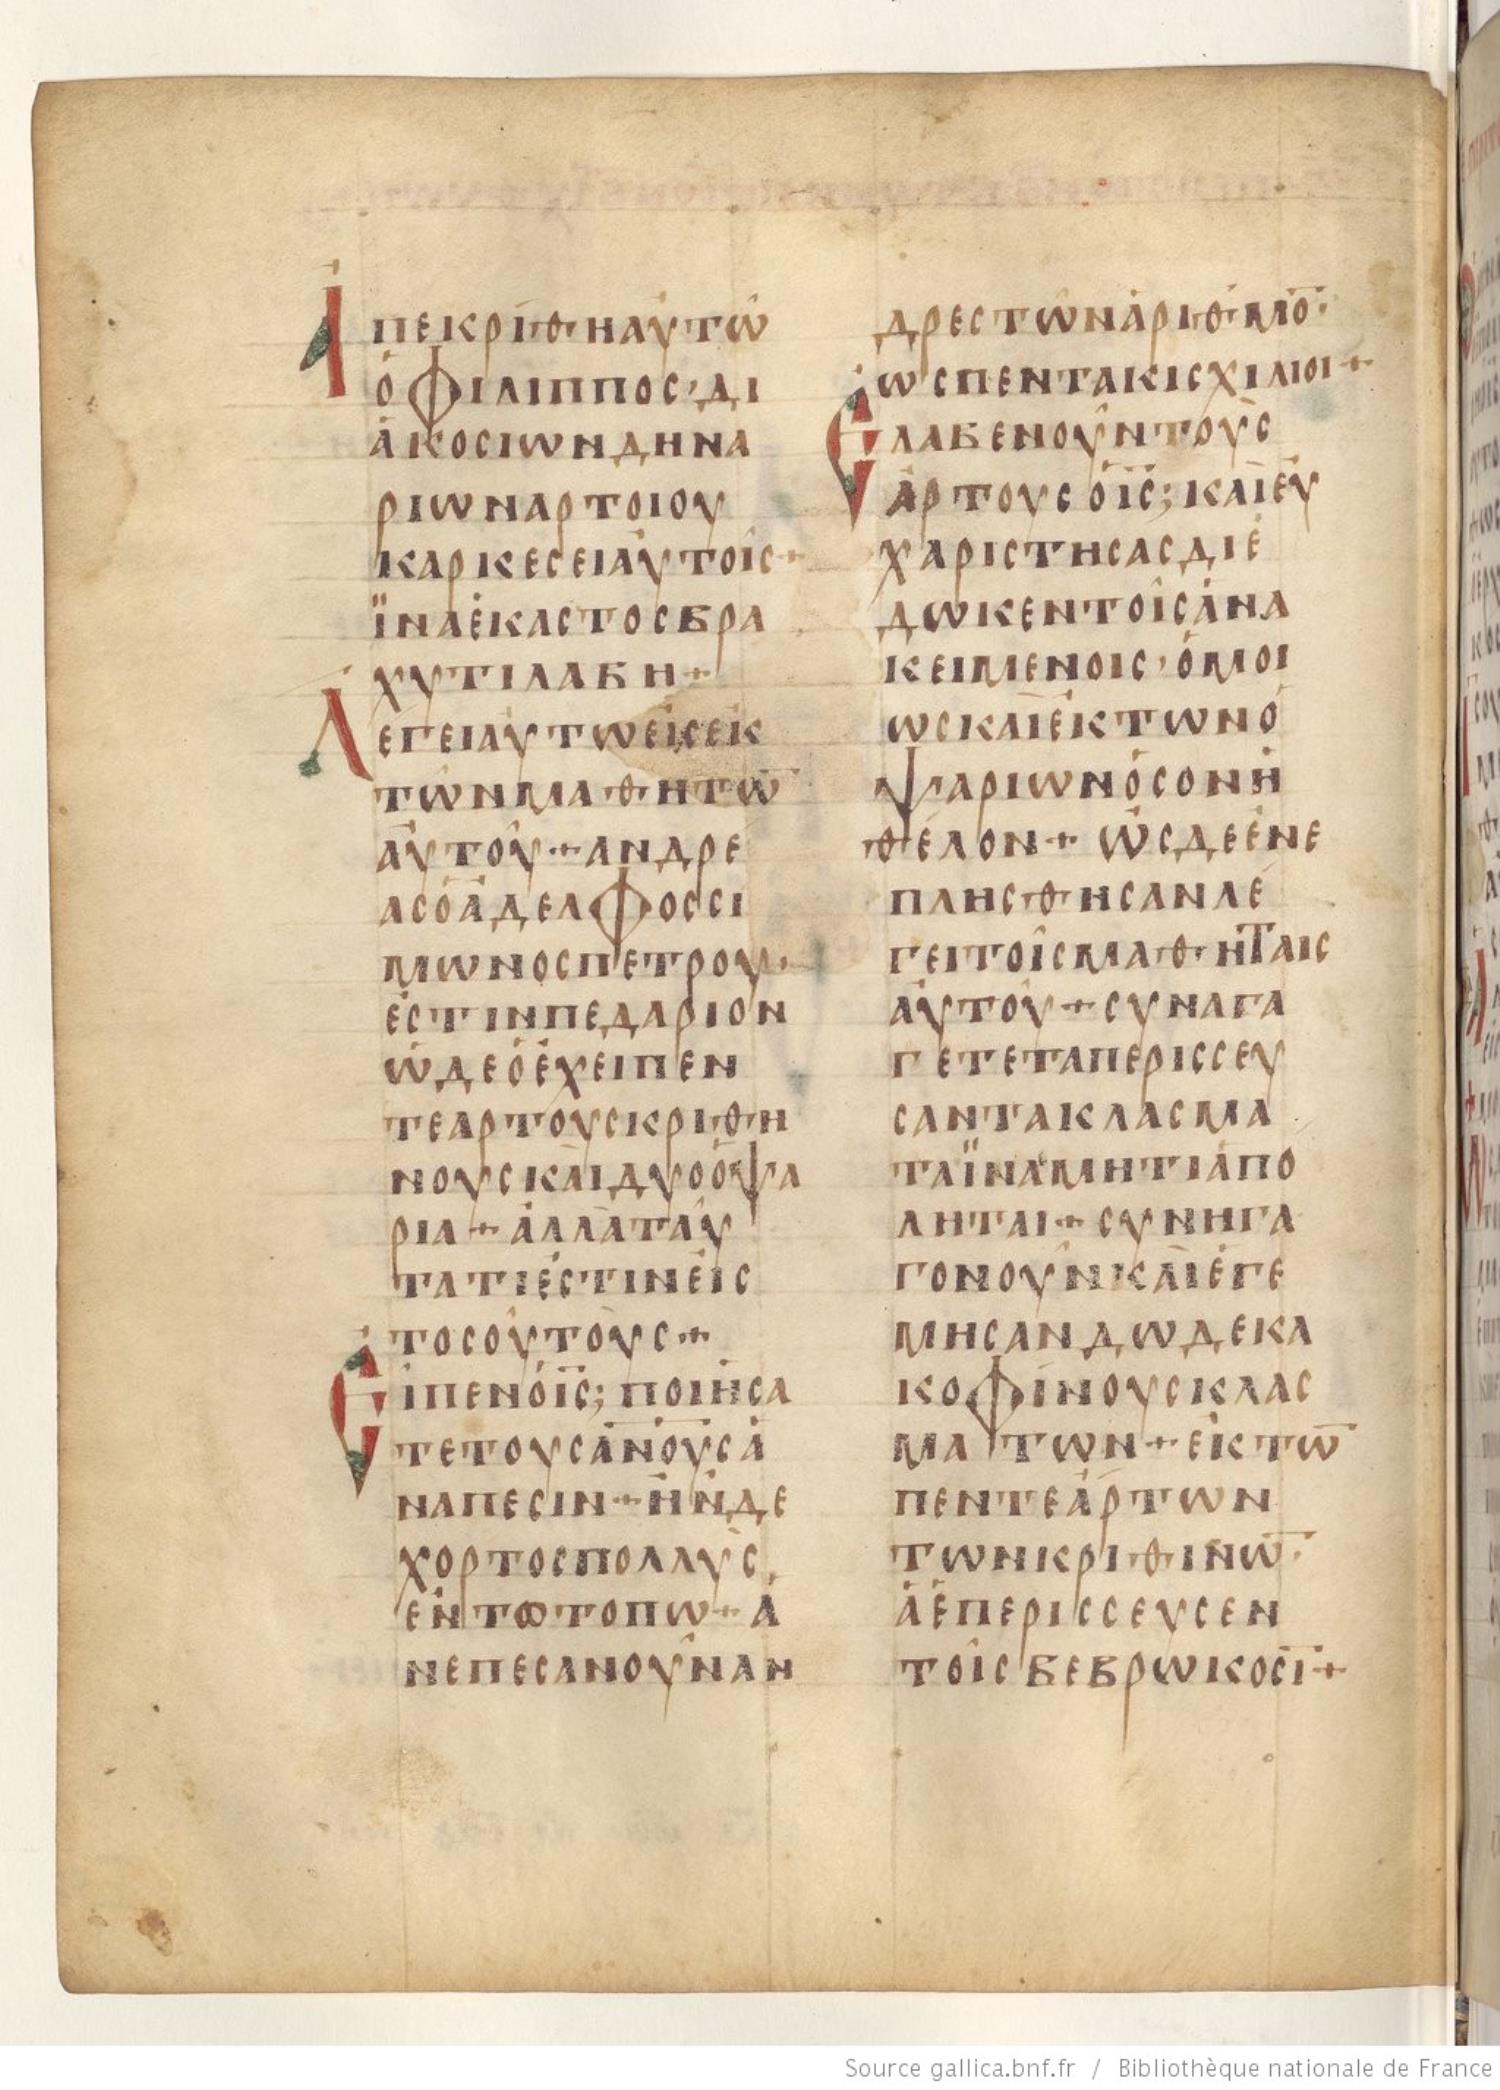 ΑΠΕΚΡΙΘΗΑΥΤΩ
ΟΦΙΛΙΠΠΟC·ΔΙ
ΑΚΟCΙΩΝΔΗΝΑ
ΡΙΩΝΑΡΤΟΙΟΥ
ΚΑΡΚΕCΕΙΑΥΤΟΙC+
ΪΝΑΕΚΑCΤΟCΒΡΑ
ΧΥΤΙΛΑΒΗ+
ΛΕΓΕΙΑΥΤΩΕΙCΕΚ
ΤΩΝΜΑΘΗΤΩ̅
ΑΥΤΟΥ+ΑΝΔΡΕ
ΑCΟΑΔΕΛΦΟCCΙ
ΜΩΝΟCΠΕΤΡΟΥ·
ΕCΤΙΝΠΕΔΑΡΙΟΝ
ΩΔΕΟΕΧΕΙΠΕΝ
ΤΕΑΡΤΟΥCΚΡΙΘΗ
ΝΟΥCΚΑΙΔΥΟΟΨΑ
ΡΙΑ+ΑΛΛΑΤΑΥ
ΤΑΤΙΕCΤΙΝΕΙC
ΤΟCΟΥΤΟΥC+
ΕΙΠΕΝΟΙ̅C̅; ΠΟΙΗCΑ
ΤΕΤΟΥCΑ̅Ν̅Ο̅Υ̅CΑ
ΝΑΠΕCΙΝ+ΗΝΔΕ
ΧΟΡΤΟCΠΟΛΛΥC,
ΕΝΤΩΤΟΠΩ+Α
ΝΕΠΕCΑΝΟΥΝΑΝ
ΔΡΕCΤΩΝΑΡΙΘΜΟ̅·
ΩCΠΕΝΤΑΚΙCΧΙΛΙΟΙ+
ΕΛΑΒΕΝΟΥΝΤΟΥC
ΑΡΤΟΥCΟΙ̅C̅; ΚΑΙΕΥ
ΧΑΡΙCΤΗCΑCΔΙΕ
ΔΩΚΕΝΤΟΙCΑΝΑ
ΚΕΙΜΕΝΟΙC·ΟΜΟΙ
ΩCΚΑΙΕΚΤΩΝΟ
ΨΑΡΙΩΝΟCΟΝΗ
ΘΕΛΟΝ+ ΩCΔΕΕΝΕ
ΠΛΗCΘΗCΑΝΛΕ
ΓΕΙΤΟΙCΜΑΘΗΤΑΙC
ΑΥΤΟΥ+CΥΝΑΓΑ
ΓΕΤΕΤΑΠΕΡΙCCΕΥ
CΑΝΤΑΚΛΑCΜΑ
ΤΑΪΝΑΜΗΤΙΑΠΟ
ΛΗΤΑΙ+CΥΝΗΓΑ
ΓΟΝΟΥΝΚΑΙΕΓΕ
ΜΗCΑΝΔΩΔΕΚΑ
ΚΟΦΙΝΟΥCΚΛΑC
ΜΑΤΩΝ+ΕΚΤΩ̅
ΠΕΝΤΕΑΡΤΩΝ
ΤΩΝΚΡΙΘΙΝΩ̅·
ΑΕΠΕΡΙCCΕΥCΕΝ
ΤΟΙCΒΕΒΡΩΚΟCΙ̅+
Source gallica.bnf.fr / Bibliothèque nationale de France